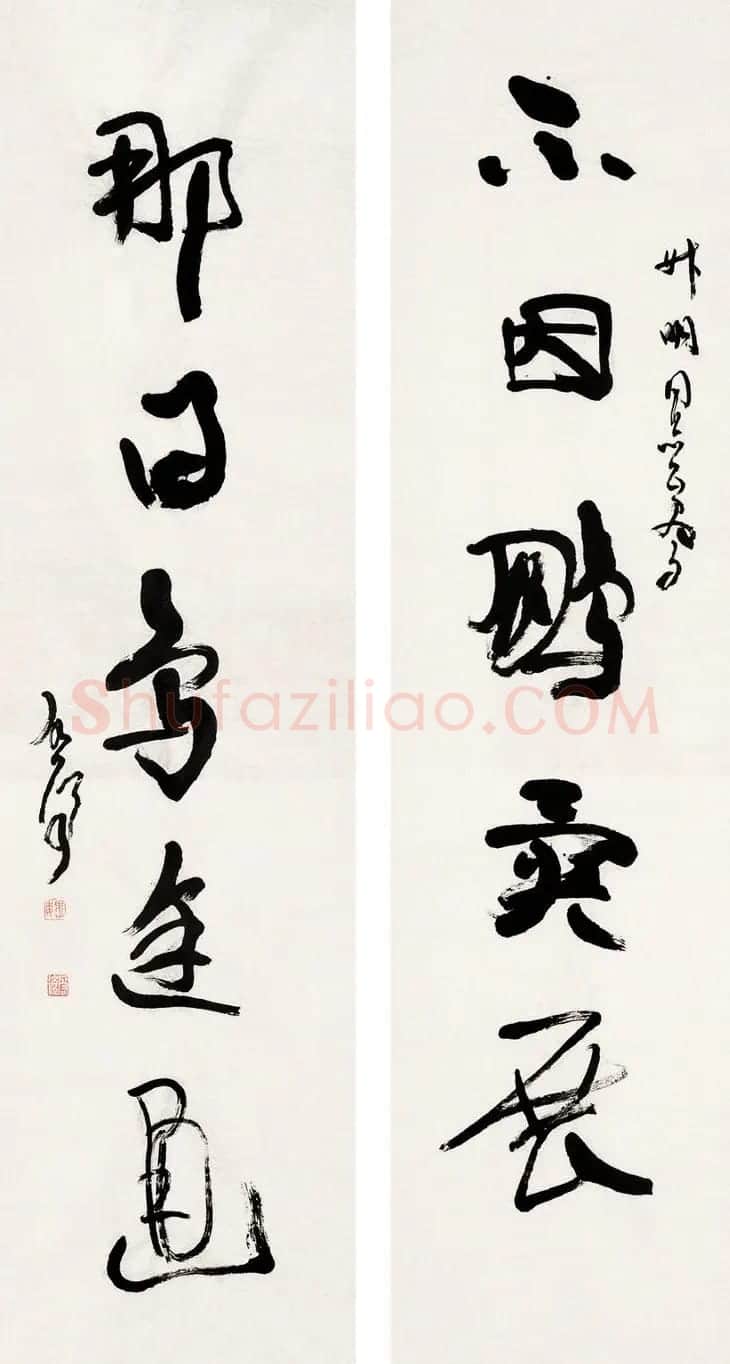 明同志
不因鵬翼展
那得鳥途通
Shufaziliao.COM